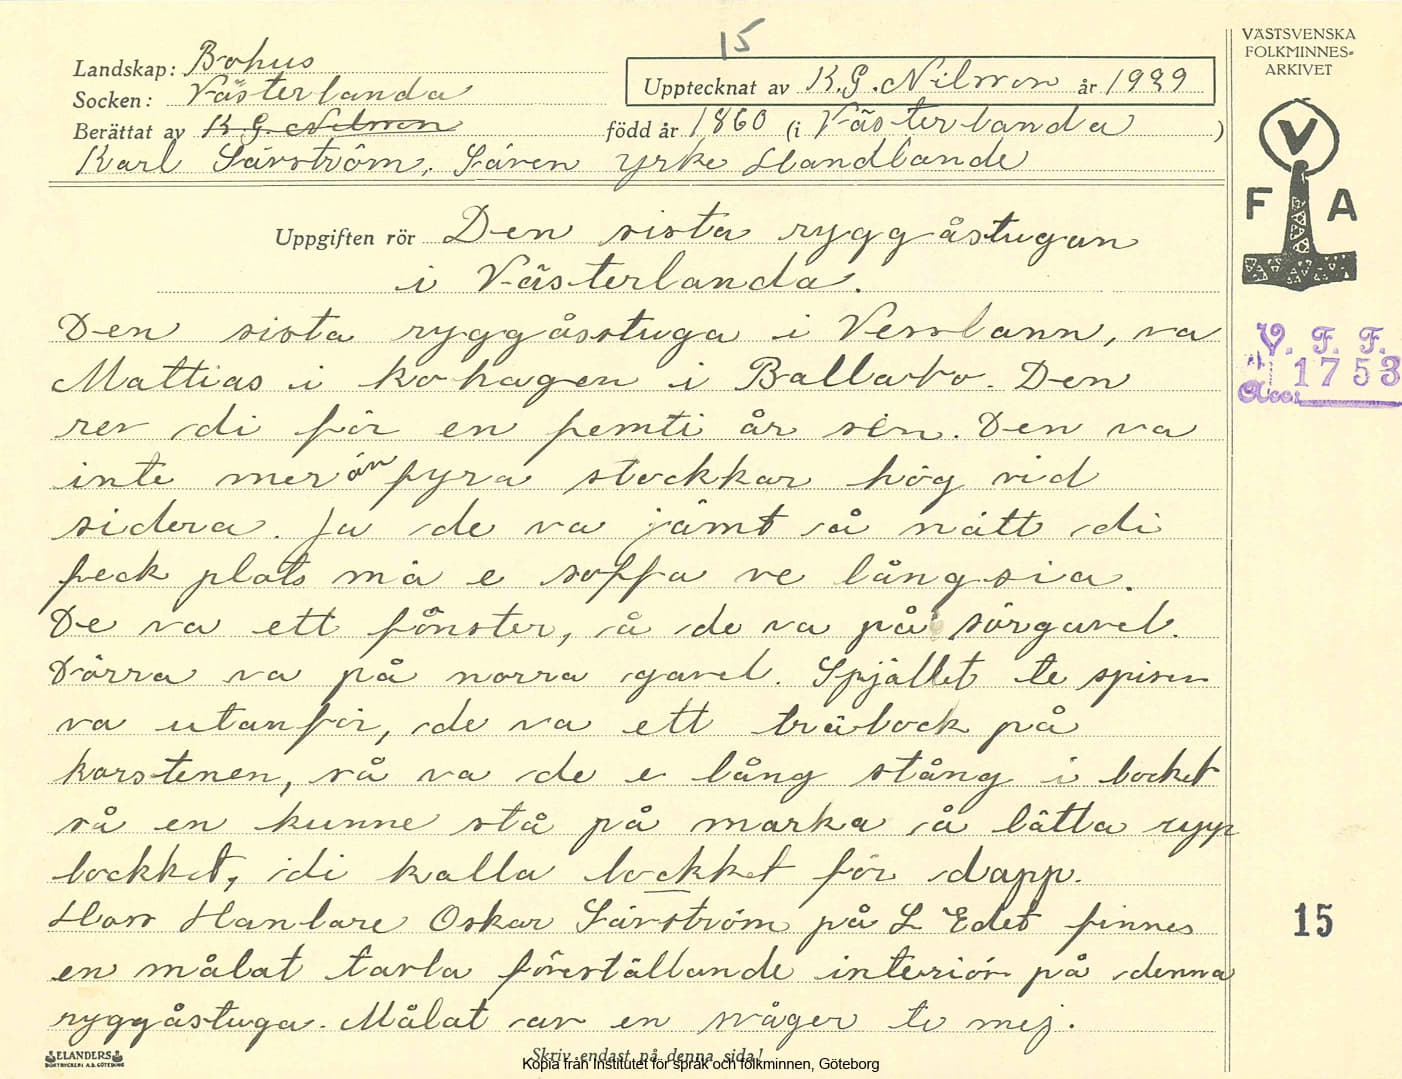 15
Landskap: Bohus
Socken: Västerlanda
Upptecknat av K.G. Nilsson år 1929
Berättat av K.G. Nilsson född år 1860 (i Västerlanda)
Karl Särström, Sären yrke Handlande
Uppgiften rör Den sista ryggåstugan
i Västerlanda.
Den sista ryggåsstuga i Vesslann, va
Mattias i kohagen i Ballabo. Den
rev di för en femti år sèn. Den va
inte mer än fyra stockkar hög vid
sidera. Ja de va jämt så nätt di
feck plats mä e soffa ve långsia.
De va ett fönster, å de va på sörgavel.
Dörra va på norra gavel. Spjället te spisen
va utanför, de va ett träbock på
korstenen, så va de e lång stång i locket
så en kunne stå på marka å lätta upp
lockket, di kalla lockket för dapp.
Hoss Hanlare Oskar Särström på L Edet finnes
en målat tavla föreställande interiör på denna
ryggåstuga. Målat av en svåger te mej.
Skriv endast på denna sida!
ELANDERS
BOKTRYCKERI A.B. GÖTEBORG
Kopia från Institutet för språk och folkminnen, Göteborg
VÄSTSVENSKA
FOLKMINNES-
ARKIVET
V
F A
V. F. F.
Acc: 1753
15